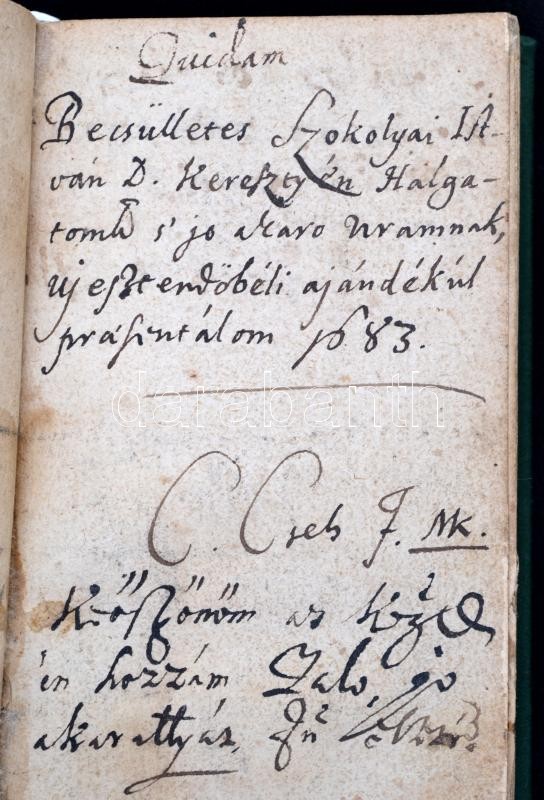 Quidam
Becsülletes Szokolyai Ist-
ván D. Keresztyén Halga-
tom s' jo akaro Uramnak,
uj esztendöbéli ajándékúl
präsentálom 1683.
darabanth
C. Cseh J. Mk.
Köszönöm az
én hozzám való jo
akarattyát,